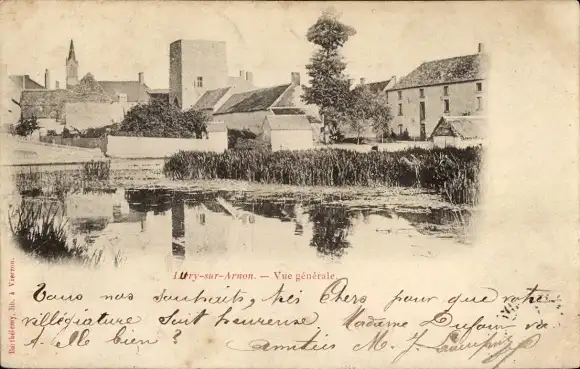 Lury-sur-Arnon. — Vue générale.
Tous nos souhaits, très chers pour que votre
villégiature soit heureuse Madame Dufour va-
t-elle bien ? amitiés M. J.
Barthélemy, lib. à Vierzon.